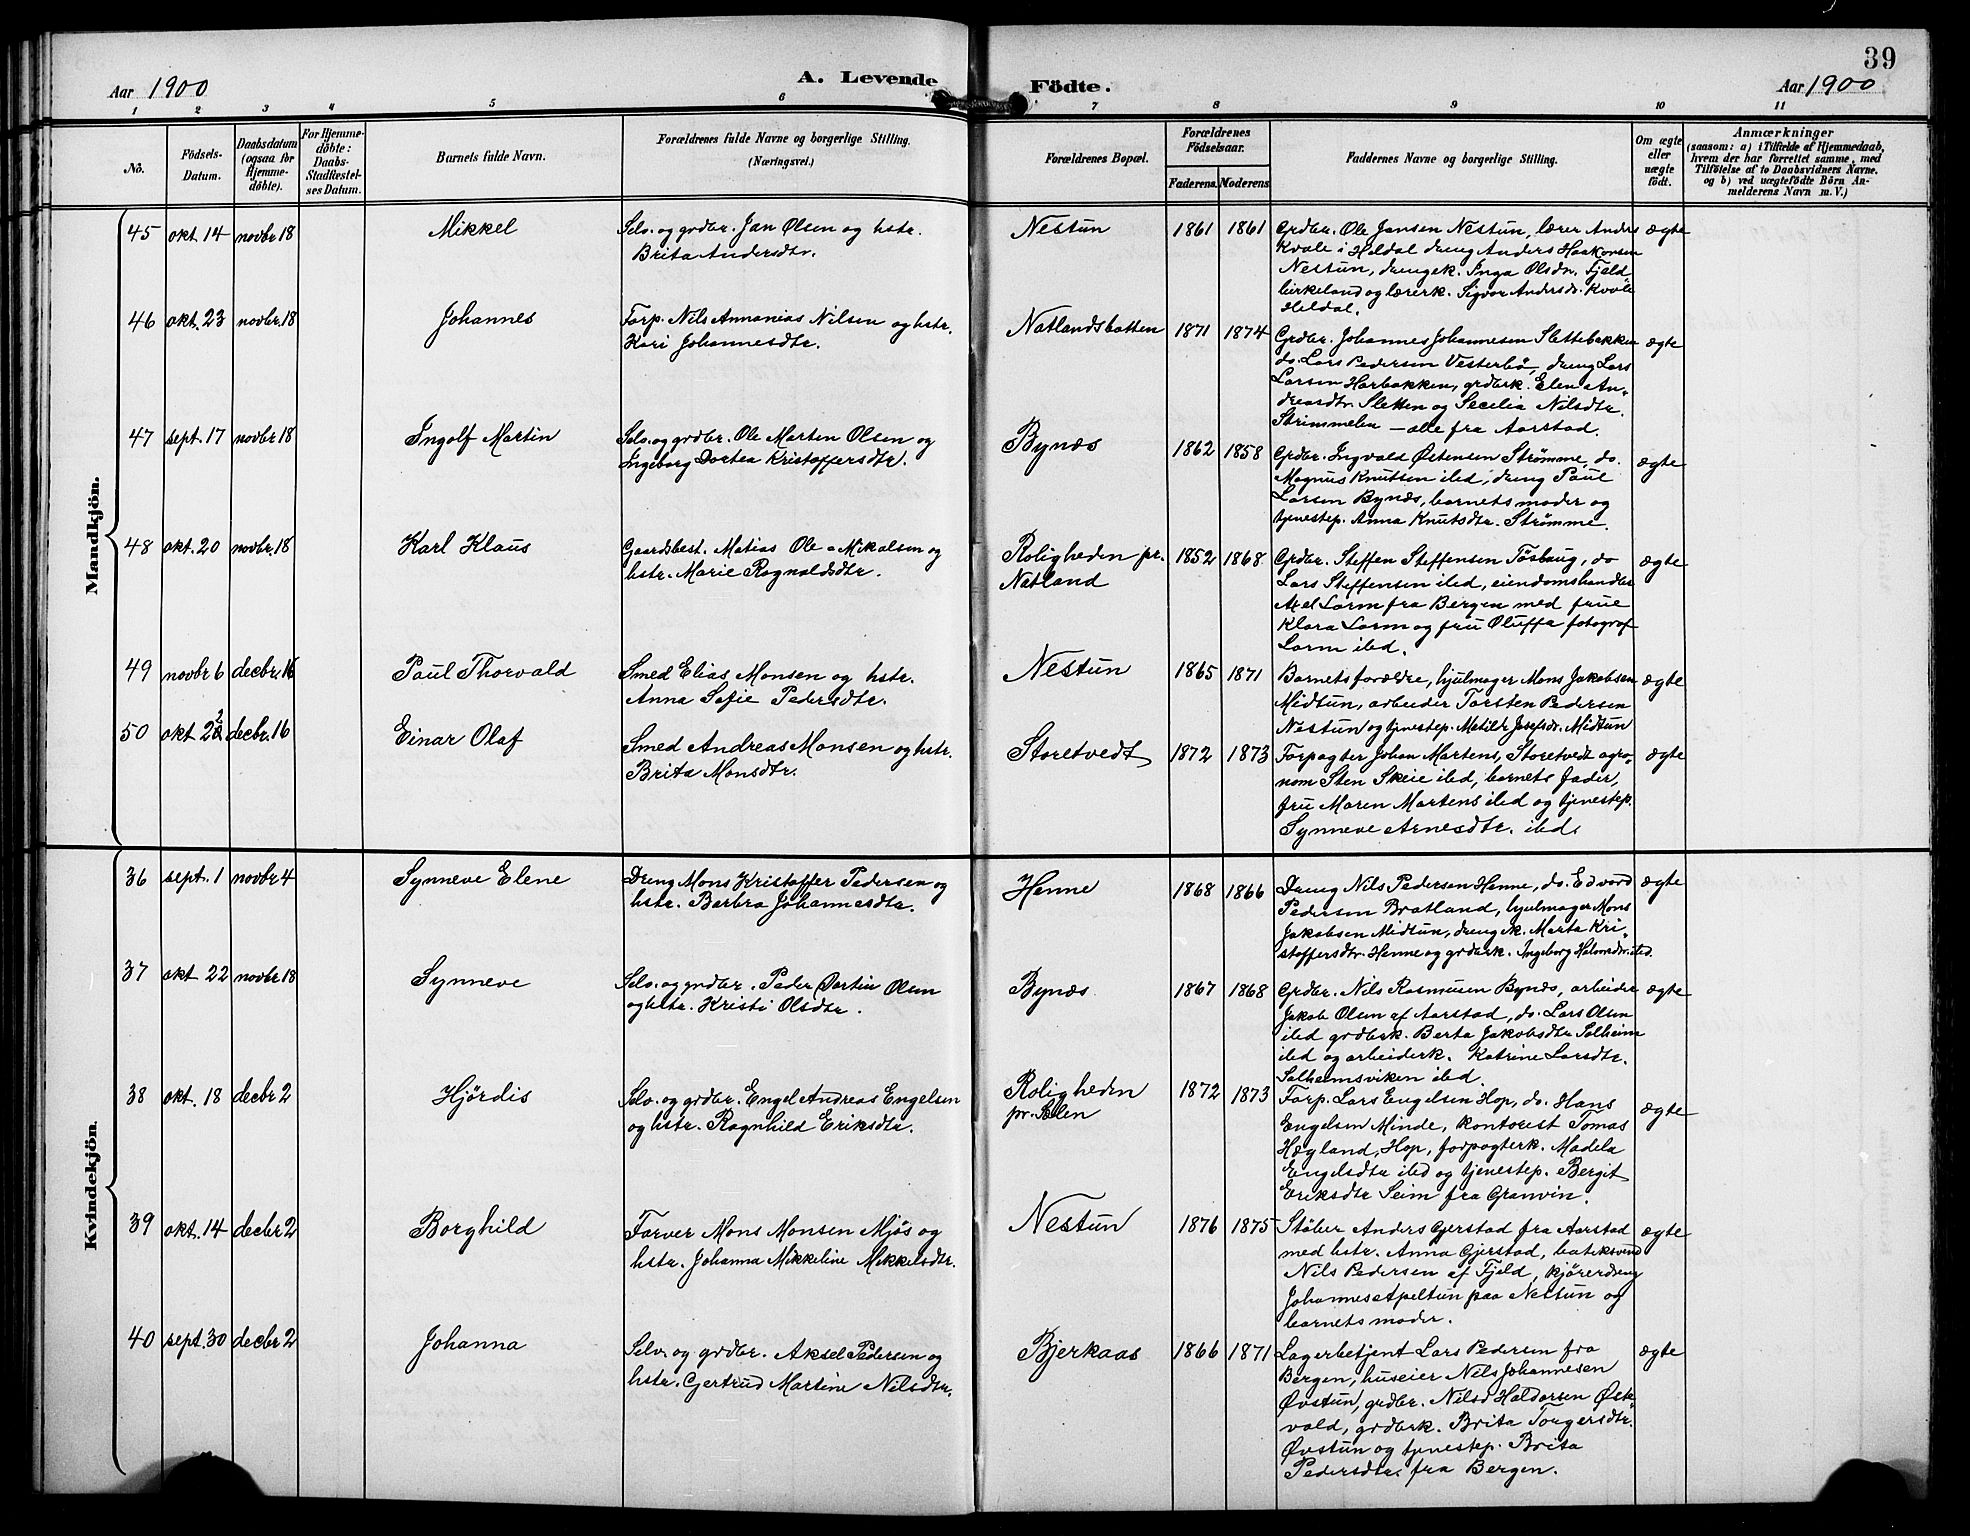 39
Aar 1900
A. Levende Födte.
Aar 1900
1 2 3 4 5 6 7 8 9 10 11
No.
Födsels-Datum.
Daabsdatum (ogsaa for Hjemme-döbte).
For Hjemme-döbte: Daabs-Stadfæstel-ses Datum.
Barnets fulde Navn.
Forældrenes fulde Navne og borgerlige Stilling.
(Næringsvei.)
Forældrenes Bopæl.
Forældrenes Födselsaar.
Faderens. Moderens.
Faddernes Navne og borgerlige Stilling.
Om ægte eller uægte født.
Anmærkninger
(saasom: a) i Tilfælde af Hjemmedaab,
hvem der har forrettet samme, med
Tilföielse af to Daabsvidners Navne,
og b) ved uægtefödte Börn An-
melderens Navn m. V.)
Mandkjön.
45 okt 14 novbr 18 Mikkel
Selv. og grdbr. Jan Olsen og hstr.
Brita Andersdtr.
Nestun 1861 1861
Grdbr. Ole Jansen Nestun, lærer Anders
Kvale i Heldal dreng Anders Haakonsen
Nestun, drengek. Inga Olsdr. Fjeld
birkeland og lærerk. Sigvor Andersdr. Kvåle
Heldal.
ægte
46 okt. 23 novbr. 18 Johannes
Forp. Nils Annanias Nilsen og hstr.
Kari Johannesdtr.
Natlandsbatten 1871 1874
Grdbr. Johannes Johannesen Slettebakken
do. Lars Pedersen Vesterbö, dreng Lars
Larsen Harbakken, grdbrk. Elen An-
dreasdtr. Sletten og Secilia Nilsdtr.
Strimmelen — alle fra Aarstad.
ægte
47 sept. 17 novbr 18 Ingolf Martin
Selv. og grdbr. Ole Marten Olsen og
Ingeborg Dortea Kristoffersdtr.
Bynæs 1862 1858
Grdbr. Ingvald Østensen Strømme, do.
Magnus Knutsen ibd, dreng Paul
Larsen Bynæs, barnets moder og
tjenestep. Anna Knutsdtr. Strømme.
ægte
48 okt. 20 novbr. 18 Karl Klaus
Gaardsbest. Matias Ole Mikalsen og
hstr. Marie Ragnaldsdtr.
Roligheden pr.
Natland
1852 1868
Grdbr. Steffen Steffensen Tøsbaug, do
Lars Steffensen ibd, eiendomshandler
Axel Lorm fra Bergen med frue
Klara Lorm og fru Oluffa fotograf
Lorm ibd.
ægte
49 novbr 6 decbr. 16 Paul Thorvald
Smed Elias Monsen og hstr.
Anna Sofie Pedersdtr.
Nestun 1865 1871
Barnets forældre, hjulmager Mons Jakobsen
Midtun, arbeider Torsten Pedersen
Nestun og tjenestep. Matilde Josefsdr. Midtun
ægte
50 okt 22 decbr. 16 Einar Olaf
Smed Andreas Monsen og hstr.
Brita Monsdtr.
Storetvedt 1872 1873
Forpagter Johan Martens, Storetvedt agro-
nom Sten Skeie ibd, barnets fader,
fru Maren Martens ibd og tjenestep.
Synneve Arnesdtr. ibd.
ægte
Kvindekjön.
36 sept. 1 novbr 4 Synneve Elene
Dreng Mons Kristoffer Pedersen og
hstr. Barbra Johannesdtr.
Henne 1868 1866
Dreng Nils Pedersen Henne, do. Edvard
Pedersen Bratland, hjulmager Mons
Jakobsen Midtun, drengek. Marta Kri-
stoffersdtr. Henne og grdbrk. Ingeborg Halvorsdr. ibd.
ægte
37 okt 22 novbr. 18 Synneve
Selv. og grdbr. Peder Martin Olsen
og hstr. Kristi Olsdtr.
Bynæs 1867 1868
Grdbr. Nils Rasmusen Bynæs, arbeider
Jakob Olsen af Aarstad, do. Lars Olsen
ibd grdbrk. Berta Jakobsdtr Solheim
ibd og arbeiderk. Katrine Larsdtr.
Solheimsviken ibd.
ægte
38 okt. 18 decbr 2 Hjördis
Selv. og grdbr. Engel Andreas Engelsen
og hstr. Ragnhild Eriksdtr.
Roligheden
pr. Sælen
1872 1873
Forp. Lars Engelsen Hop, do. Hans
Engelsen Minde, kontorist Tomas
Høgland, Hop, forpagterk. Madela
Engelsdtr ibd og tjenestep. Bergit
Eriksdtr Seim fra Granvin.
ægte
39 okt. 14 decbr 2 Borghild
Farver Mons Monsen Mjös og
hstr. Johanna Mikkeline Mikkelsdtr.
Nestun 1876 1875
Støber Anders Gjerstad fra Aarstad
med hstr. Anna Gjerstad, batiksvend
Nils Pedersen af Fjeld, kjørerdreng
Johannes Apeltun paa Nestun og
barnets moder.
ægte
40 sept. 30 decbr 2 Johanna
Selv. og grdbr. Aksel Pedersen og
hstr. Gertrud Martine Nilsdtr.
Bjerkaas 1866 1871
Lagerbetjent Lars Pedersen fra
Bergen, huseier Nils Johannesen
Øvstun, grdbr. Nils Haldorsen Øst-
vold, grdbrk. Brita Torgersdtr.
Øvstun og tjenestep. Brita
Pedersdtr. fra Bergen.
ægte